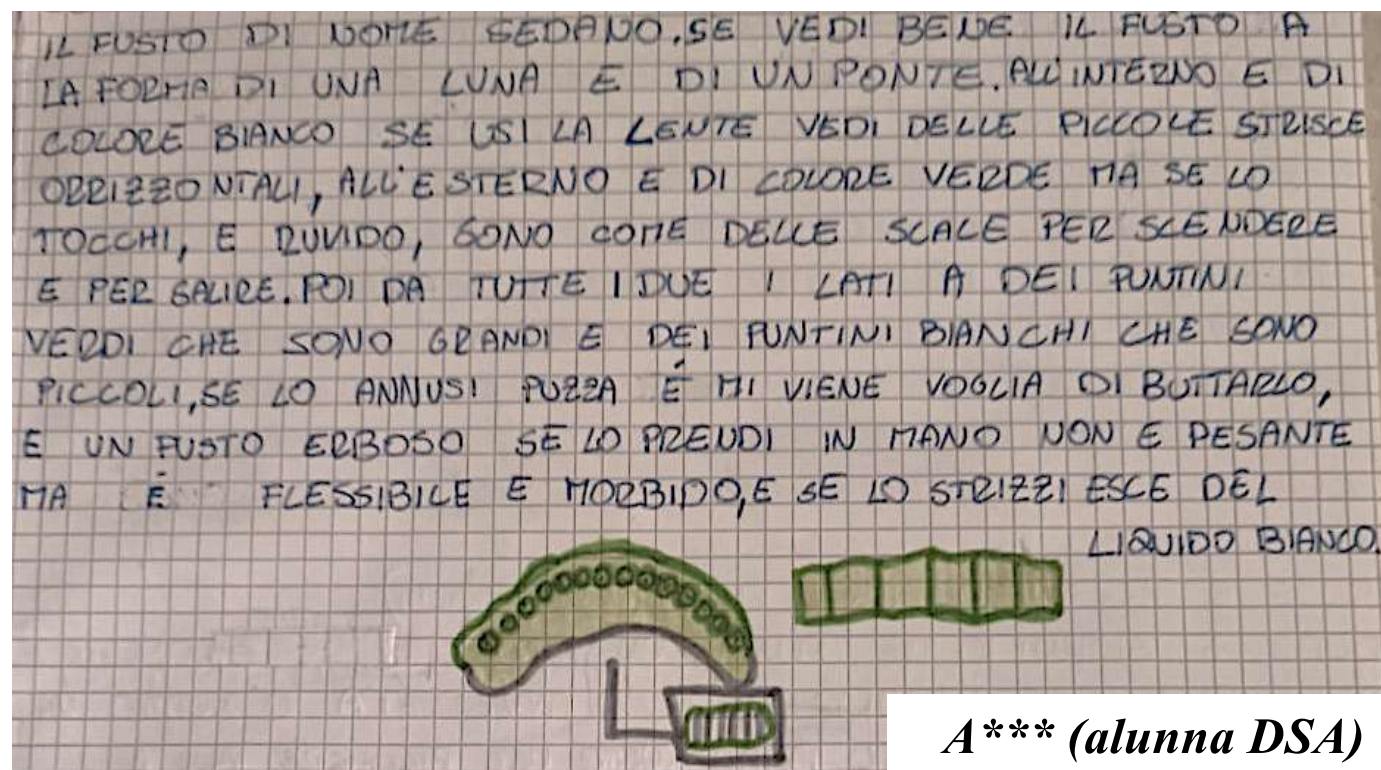 IL FUSTO DI NOME SEDANO.SE VEDI BENE IL FUSTO A
LA FORMA DI UNA LUNA E DI UN PONTE. ALL'INTERNO E DI
COLORE BIANCO SE USI LA LENTE VEDI DELLE PICCOLE STRISCE
ORRIZZONTALI, ALL'ESTERNO E DI COLORE VERDE MA SE LO
TOCCHI, E RUVIDO, SONO COME DELLE SCALE PER SCENDERE
E PER SALIRE. POI DA TUTTE I DUE I LATI A DEI PUNTINI
VERDI CHE SONO GRANDI E DEI PUNTINI BIANCHI CHE SONO
PICCOLI, SE LO ANNUSI PUZZA É MI VIENE VOGLIA DI BUTTARLO,
E UN FUSTO ERBOSO SE LO PRENDI IN MANO NON E PESANTE
MA É FLESSIBILE E MORBIDO, E SE LO STRIZZI ESCE DEL
LIQUIDO BIANCO.
A*** (alunna DSA)